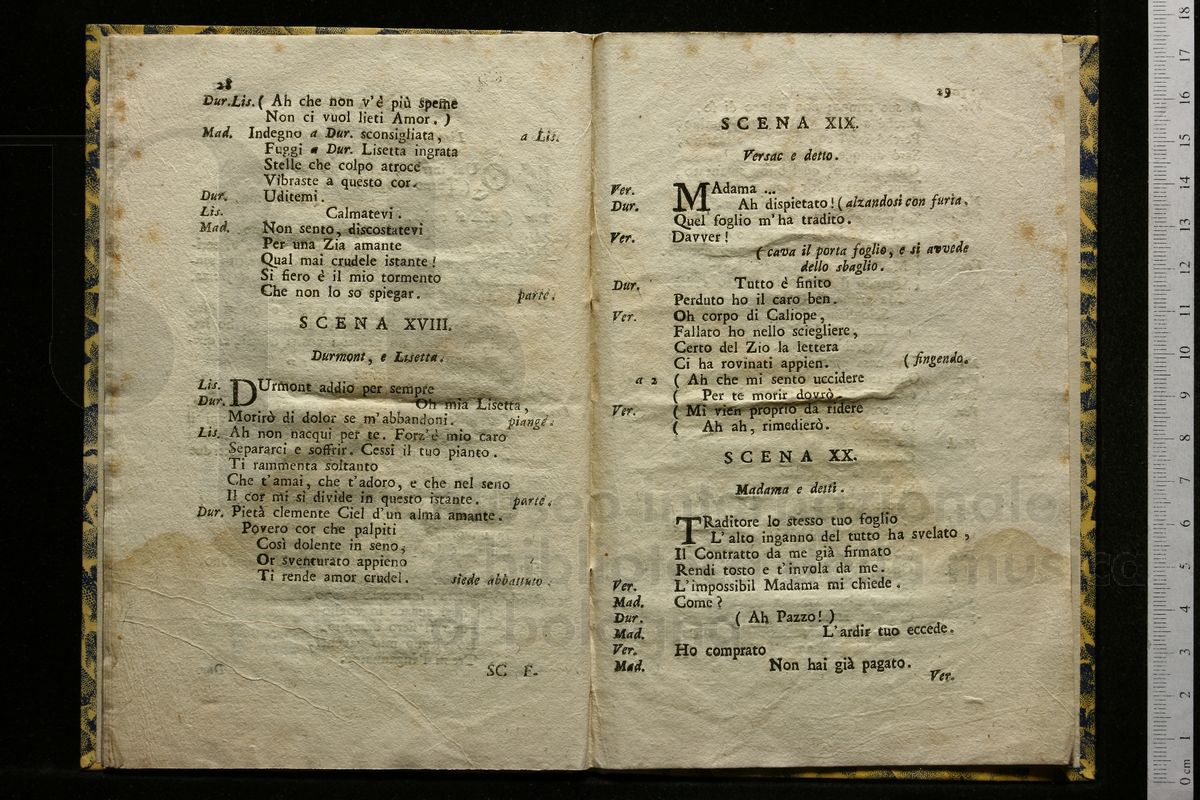 28
Dur.Lis. ( Ah che non v'è più speme
Non ci vuol lieti Amor. )
Mad. Indegno a Dur. sconsigliata, a Lis.
Fuggi a Dur. Lisetta ingrata
Stelle che colpo atroce
Vibraste a questo cor.
Dur. Uditemi.
Lis. Calmatevi.
Mad. Non sento, discostatevi
Per una Zia amante
Qual mai crudele istante!
Si fiero è il mio tormento
Che non lo so spiegar. parte.
SCENA XVIII.
Durmont, e Lisetta.
Lis. DUrmont addio per sempre
Dur. Oh mia Lisetta,
Morirò di dolor se m'abbandoni. piange.
Lis. Ah non nacqui per te. Forz'è mio caro
Separarci e soffrir. Cessi il tuo pianto.
Ti rammenta soltanto
Che t'amai, che t'adoro, e che nel seno
Il cor mi si divide in questo istante. parte.
Dur. Pietà clemente Ciel d'un alma amante.
Povero cor che palpiti
Così dolente in seno,
Or sventurato appieno
Ti rende amor crudel. siede abbattuto.
SC E-
29
SCENA XIX.
Versac e detto.
Ver. MAdama ...
Dur. Ah dispietato! ( alzandosi con furia,
Quel foglio m'ha tradito.
Ver. Davver!
( cava il porta foglio, e si avvede
dello sbaglio.
Dur. Tutto è finito
Perduto ho il caro ben.
Ver. Oh corpo di Caliope,
Fallato ho nello sciegliere,
Certo del Zio la lettera
Ci ha rovinati appien. ( fingendo.
a 2 ( Ah che mi sento uccidere
( Per te morir dovrò.
Ver. ( Mi vien proprio da ridere
( Ah ah, rimedierò.
SCENA XX.
Madama e detti.
TRaditore lo stesso tuo foglio
L'alto inganno del tutto ha svelato,
Il Contratto da me già firmato
Rendi tosto e t'invola da me.
Ver. L'impossibil Madama mi chiede.
Mad. Come?
Dur. ( Ah Pazzo! )
Mad. L'ardir tuo eccede.
Ver. Ho comprato
Mad. Non hai già pagato.
Ver.